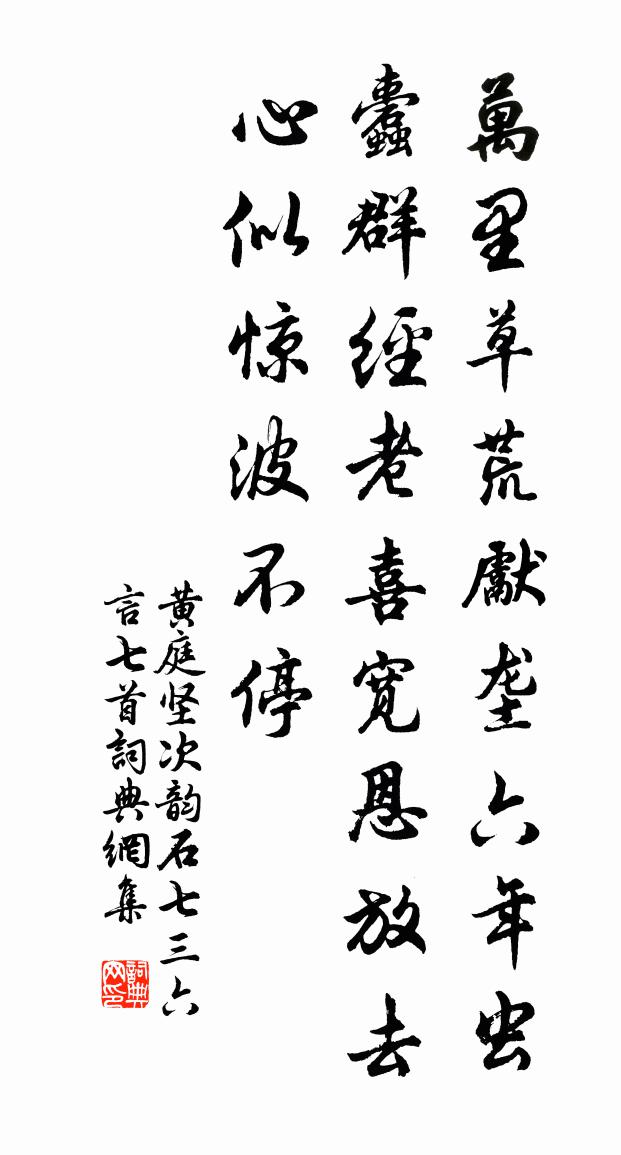 萬里草荒獻垄六年虫
蠹群經老喜寬恩放去
心似惊波不停
黄庭坚次韵石七三六
言七首詞典網集
詞典网印